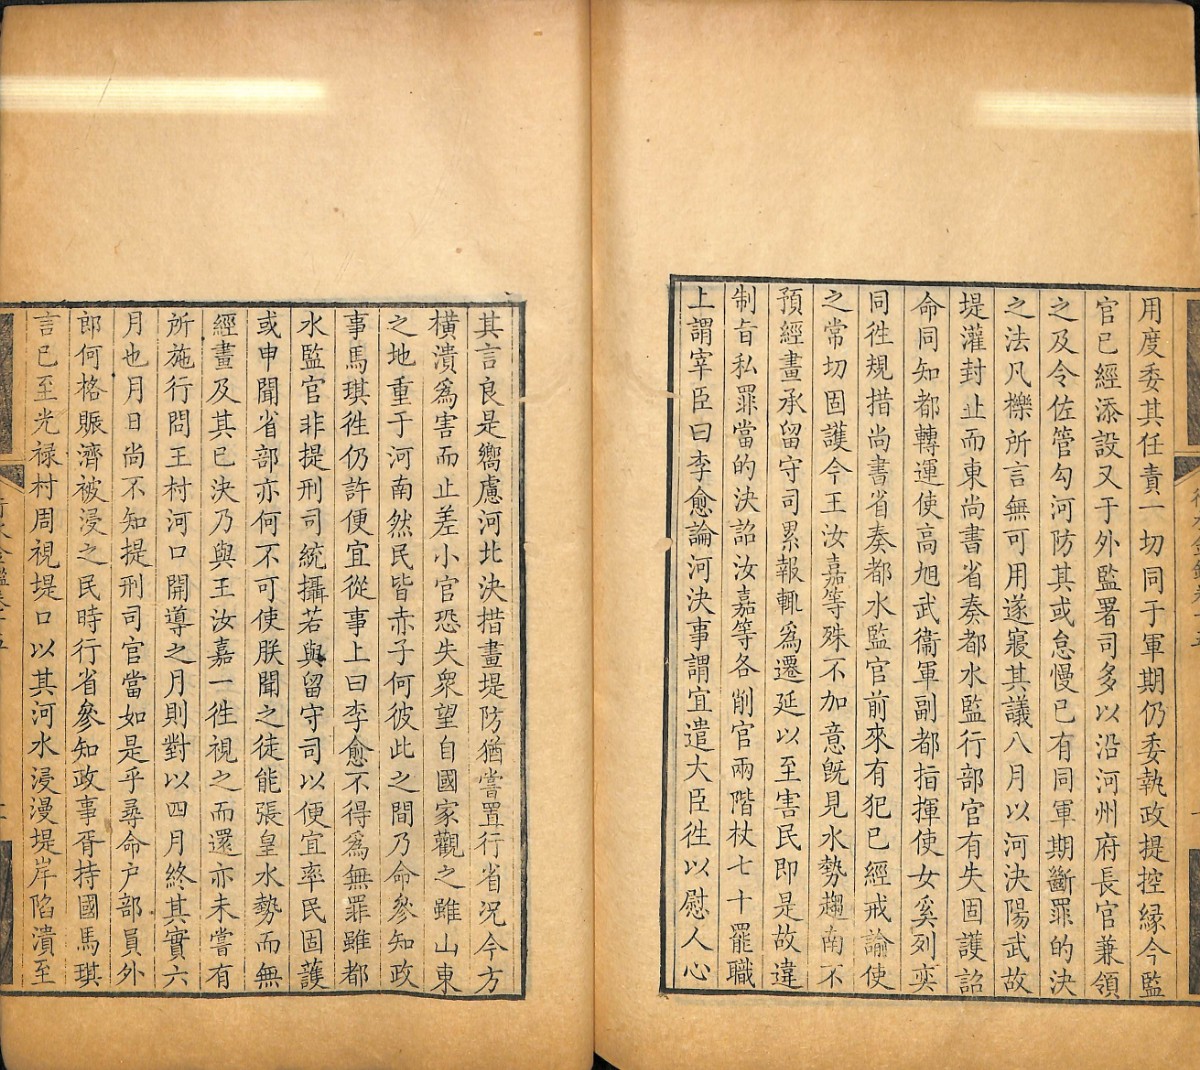 用度委其任責一切同于軍期仍委執政提控縁今監
官已經添設又于外監署司多以沿河州府長官兼領
之及令佐管勾河防其或怠慢已有同軍期斷罪的決
之法凡櫟所言無可用遂寢其議八月以河決陽武故
堤灌封丘而東尚書省奏都水監行部官有失固護詔
命同知都轉運使高旭武衞軍副都指揮使女奚列奕
同徃規措尚書省奏都水監官前來有犯已經戒諭使
之常切固護今王汝嘉等殊不加意旣見水勢趨南不
預經畫承留守司累報輒爲遷延以至害民即是故違
制旨私罪當的決詔汝嘉等各削官兩階杖七十罷職
上謂宰臣曰李愈論河決事謂宜遣大臣徃以慰人心
其言良是嚮慮河北決措畫堤防猶嘗置行省况今方
橫潰爲害而止差小官恐失衆望自國家觀之雖山東
之地重于河南然民皆赤子何彼此之間乃命參知政
事馬琪徃仍許便宜從事上曰李愈不得爲無罪雖都
水監官非提刑司統攝若與留守司以便宜率民固護
或申聞省部亦何不可使朕聞之徒能張皇水勢而無
經畫及其已決乃與王汝嘉一徃視之而還亦未嘗有
所施行問王村河口開導之月則對以四月終其實六
月也月日尚不知提刑司官當如是乎尋命户部員外
郎何格賑濟被浸之民時行省參知政事胥持國馬琪
言已至光禄村周視堤口以其河水浸漫堤岸陷潰至